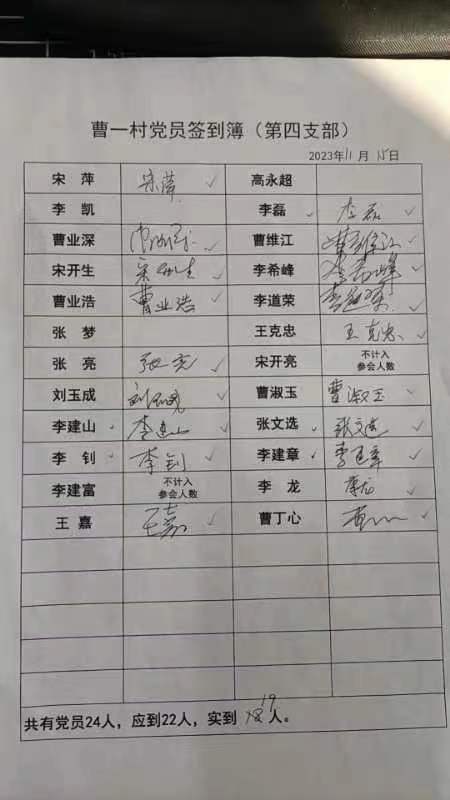 曹一村党员签到簿（第四支部）
2023年11月15日
宋 萍 宋萍 ✓ 高永超
李 凯 李磊 李磊 ✓
曹业深 ✓ 曹维江 曹维江 ✓
宋开生 宋开生 ✓ 李希峰 李希峰 ✓
曹业浩 曹业浩 ✓ 李道荣 李道荣 ✓
张 梦 王克忠 王克忠 ✓
张 亮 张亮 ✓ 宋开亮 不计入
参会人数
刘玉成 刘玉成 ✓ 曹淑玉 曹淑玉 ✓
李建山 李建山 ✓ 张文选 张文选 ✓
李 钊 李钊 ✓ 李建章 李建章 ✓
李建富 不计入
参会人数 李 龙 李龙 ✓
王 嘉 王嘉 ✓ 曹丁心 ✓
共有党员24人，应到22人，实到19人。